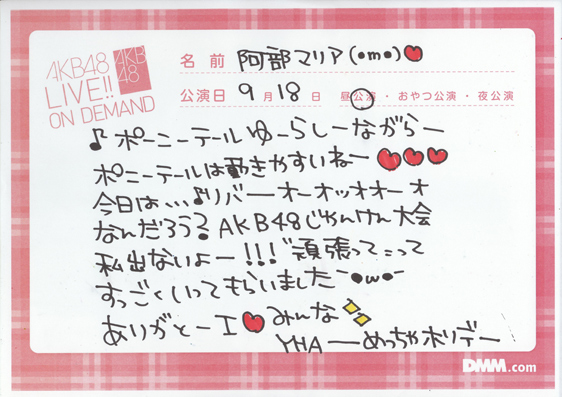 AKB48
LIVE!!
ON DEMAND
AKB
48
名前 阿部マリア(•m•)♥
公演日 9月18日 昼公演・おやつ公演・夜公演
♪ポーニーテールゆーらしーながらー
ポニーテールは動きやすいねー♥♥♥
今日は...♪リバーーオーオッオオーオ
なんだろう? AKB48じゃんけん大会
私出ないよー!!!"頑張ってって
すっごくいってもらいました•ω•
ありがとーI♥みんな
YHAーーめっちゃホリデー
DMM.com